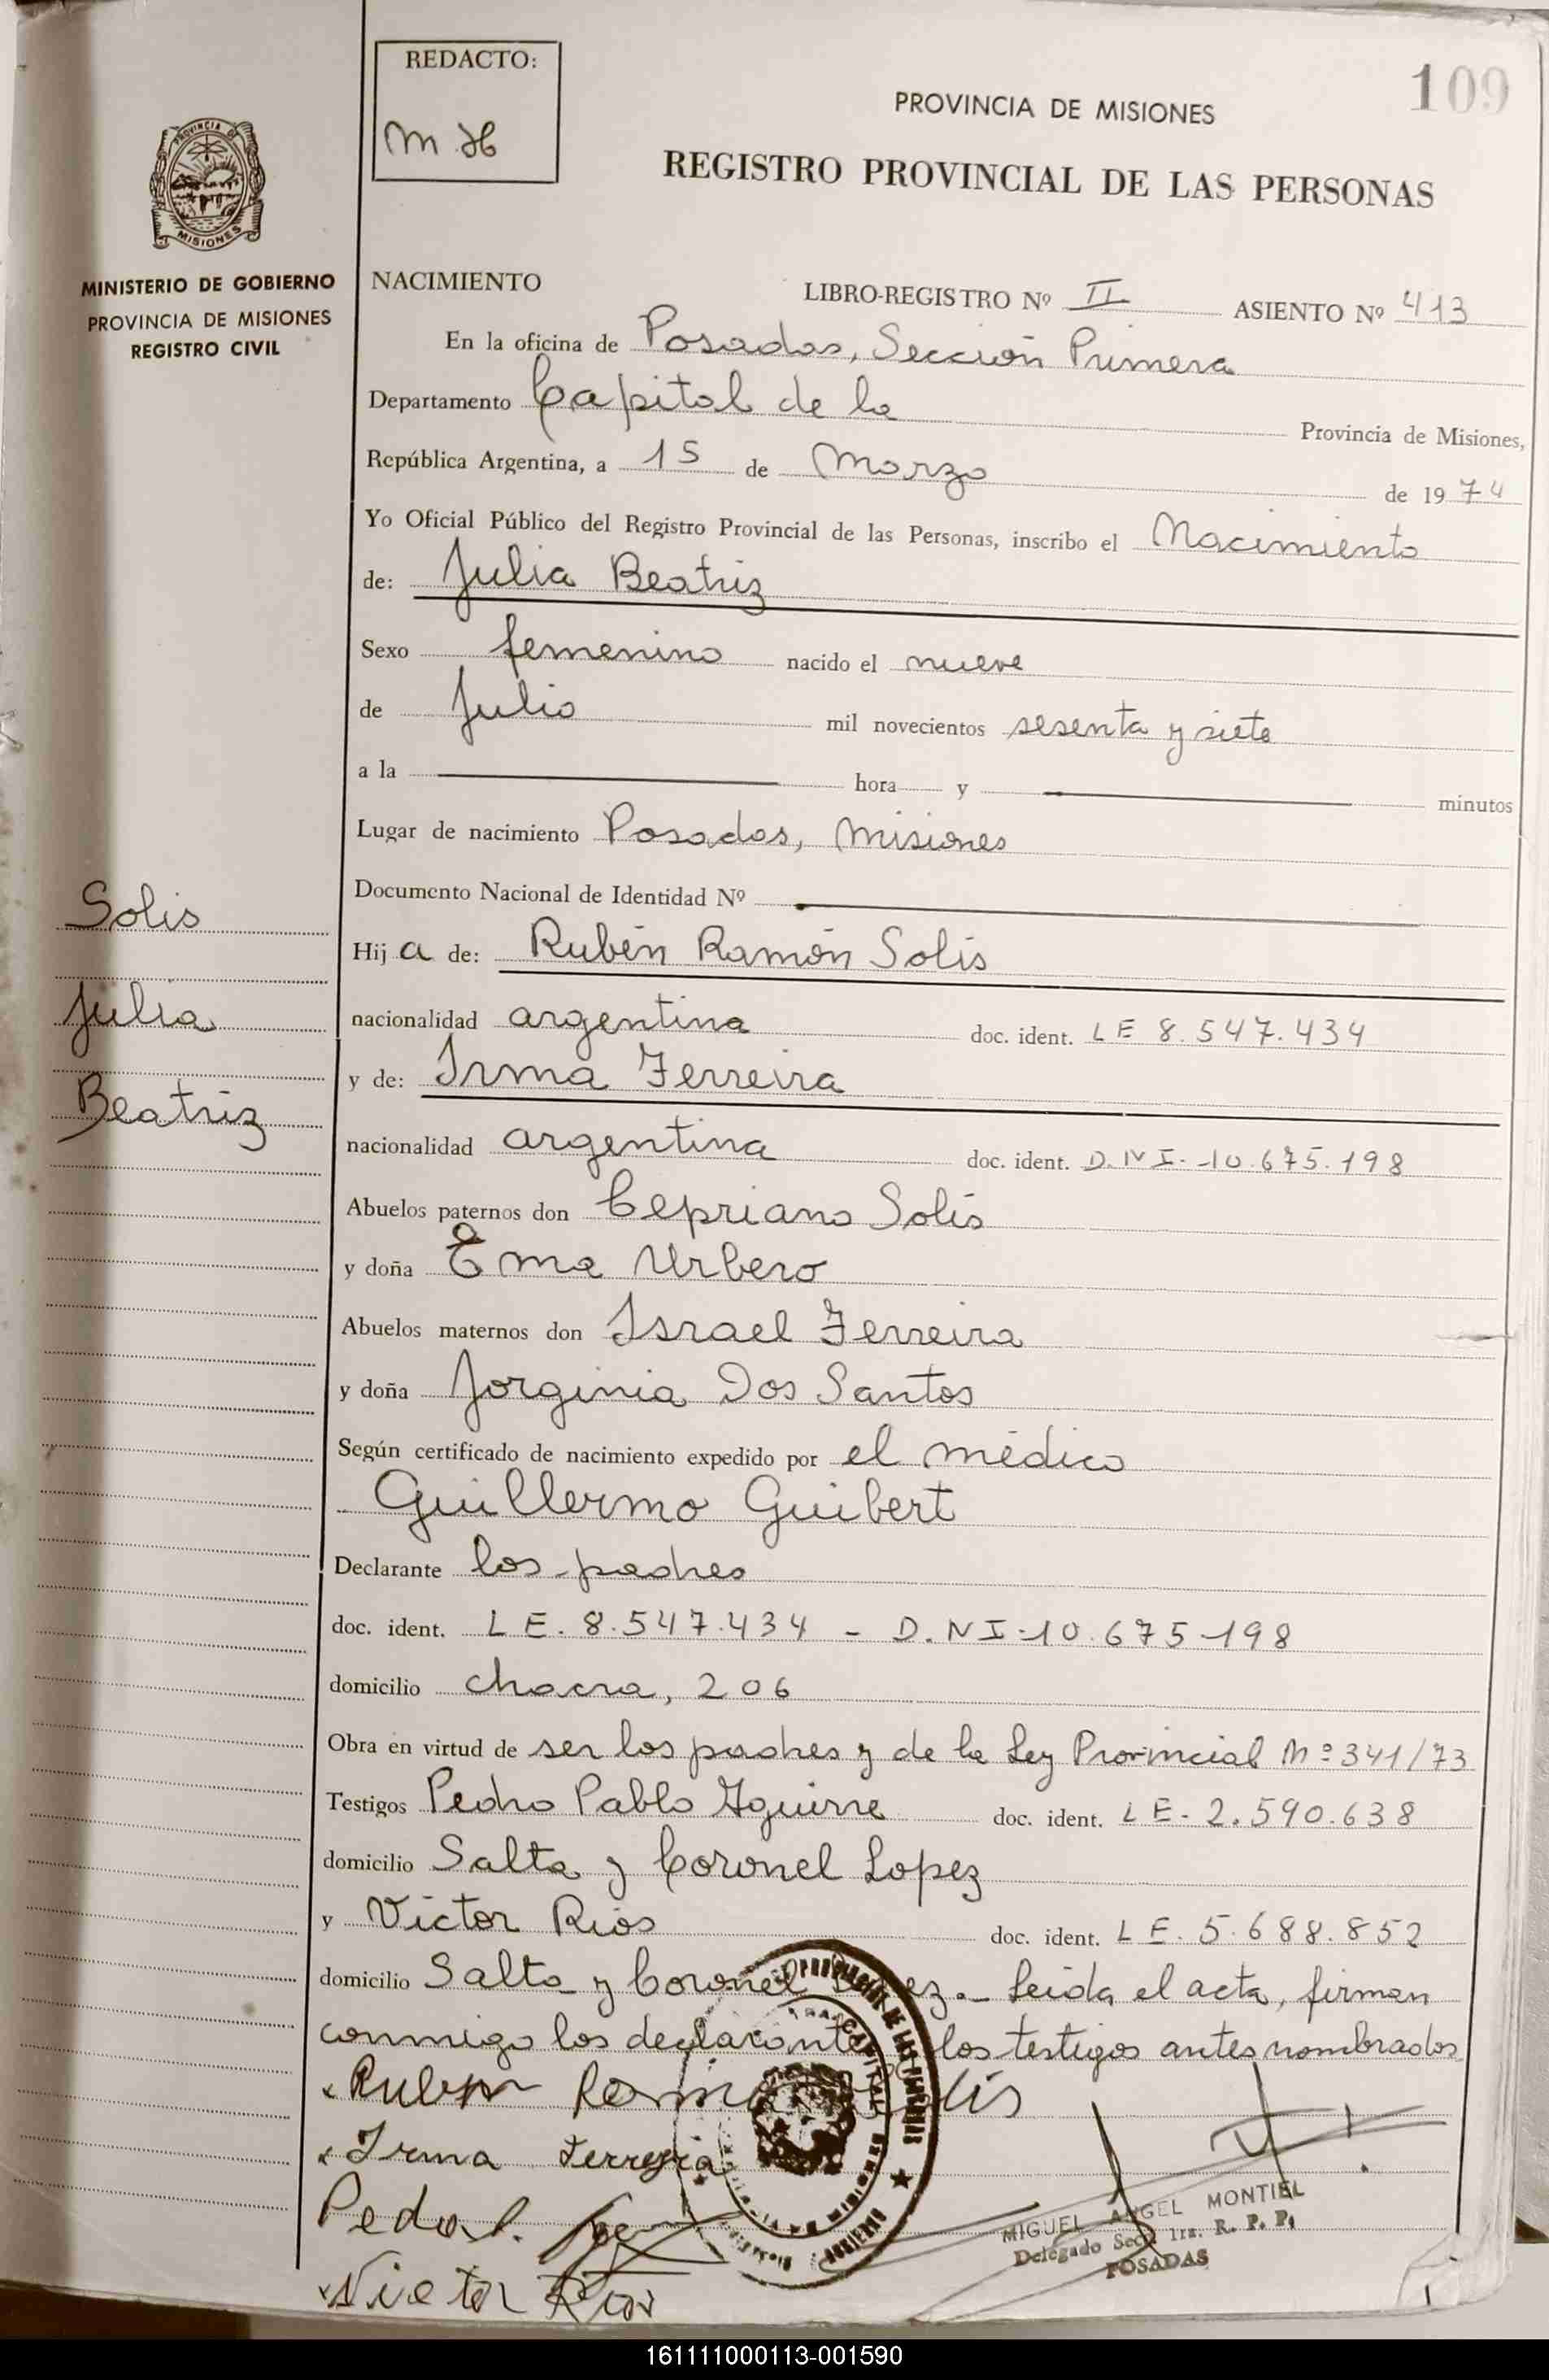 REDACTO:
M H
109
PROVINCIA DE MISIONES
REGISTRO PROVINCIAL DE LAS PERSONAS
PROVINCIA DE
MISIONES
MINISTERIO DE GOBIERNO
PROVINCIA DE MISIONES
REGISTRO CIVIL
NACIMIENTO
LIBRO-REGISTRO Nº II ASIENTO Nº 413
En la oficina de Posadas, Sección Primera
Departamento Capital de la Provincia de Misiones,
República Argentina, a 15 de Marzo de 1974
Yo Oficial Público del Registro Provincial de las Personas, inscribo el Nacimiento
de: Julia Beatriz
Sexo femenino nacido el nueve
de Julio mil novecientos sesenta y siete
a la hora y minutos
Lugar de nacimiento Posadas, Misiones
Documento Nacional de Identidad Nº
Solis
Julia
Beatriz
Hija de: Rubén Ramón Solís
nacionalidad argentina doc. ident. LE 8.547.434
y de: Irma Ferreira
nacionalidad argentina doc. ident. D.N I.-10.675.198
Abuelos paternos don Cepriano Solís
y doña Ema Urbero
Abuelos maternos don Israel Ferreira
y doña Jorginia Dos Santos
Según certificado de nacimiento expedido por el médico
Guillermo Guibert
Declarante los padres
doc. ident. L E. 8.547.434 - D.N I-10.675-198
domicilio chacra, 206
Obra en virtud de ser los padres y de la Ley Provincial Nº 341/73
Testigos Pedro Pablo Aguirre doc. ident. L E- 2.590.638
domicilio Salta y Coronel Lopez
y Victor Rios doc. ident. L E. 5.688.852
domicilio Salta y Coronel Lopez.- Leida el acta, firman
conmigo los declarantes los testigos antes nombrados
Ruben Ramon Solis
Irma Ferreira
Pedro P.
Victor Rios
MIGUEL ANGEL MONTIEL
Delegado Secc. 1ra. R. P. P.
POSADAS
161111000113-001590